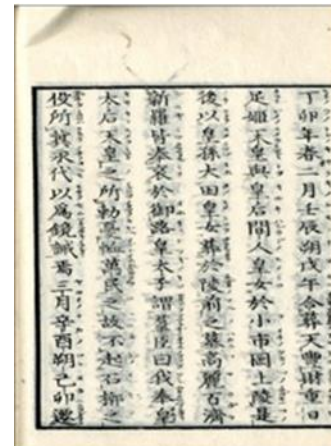 丁卯年春二月壬辰朔戊午合葬天豊財重日
足姫天皇與皇后間人皇女於小市岡上陵是
後以皇孫大田皇女葬於陵前之墓高麗百濟
新羅皆奉哀於御路皇太子謂羣臣曰我奉皇
太后天皇之所勅憂恤萬民之故不起石槨之
役所冀永代以爲鏡誡焉三月辛酉朔己卯遷